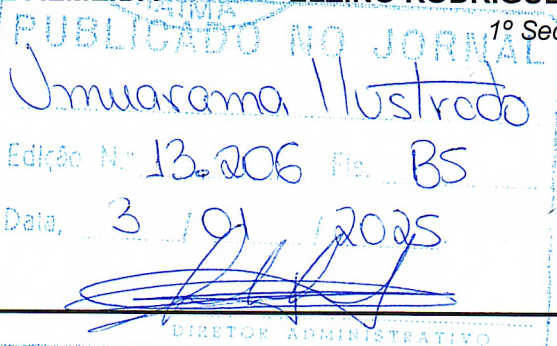 ELLINO RODRIGUE
1º Sec
PUBLICADO NO JORNAL
Umuarama Ilustrado
Edição N.º 13.206 Fls. B5
Data, 3 / 01 / 2025
DIRETOR ADMINISTRATIVO